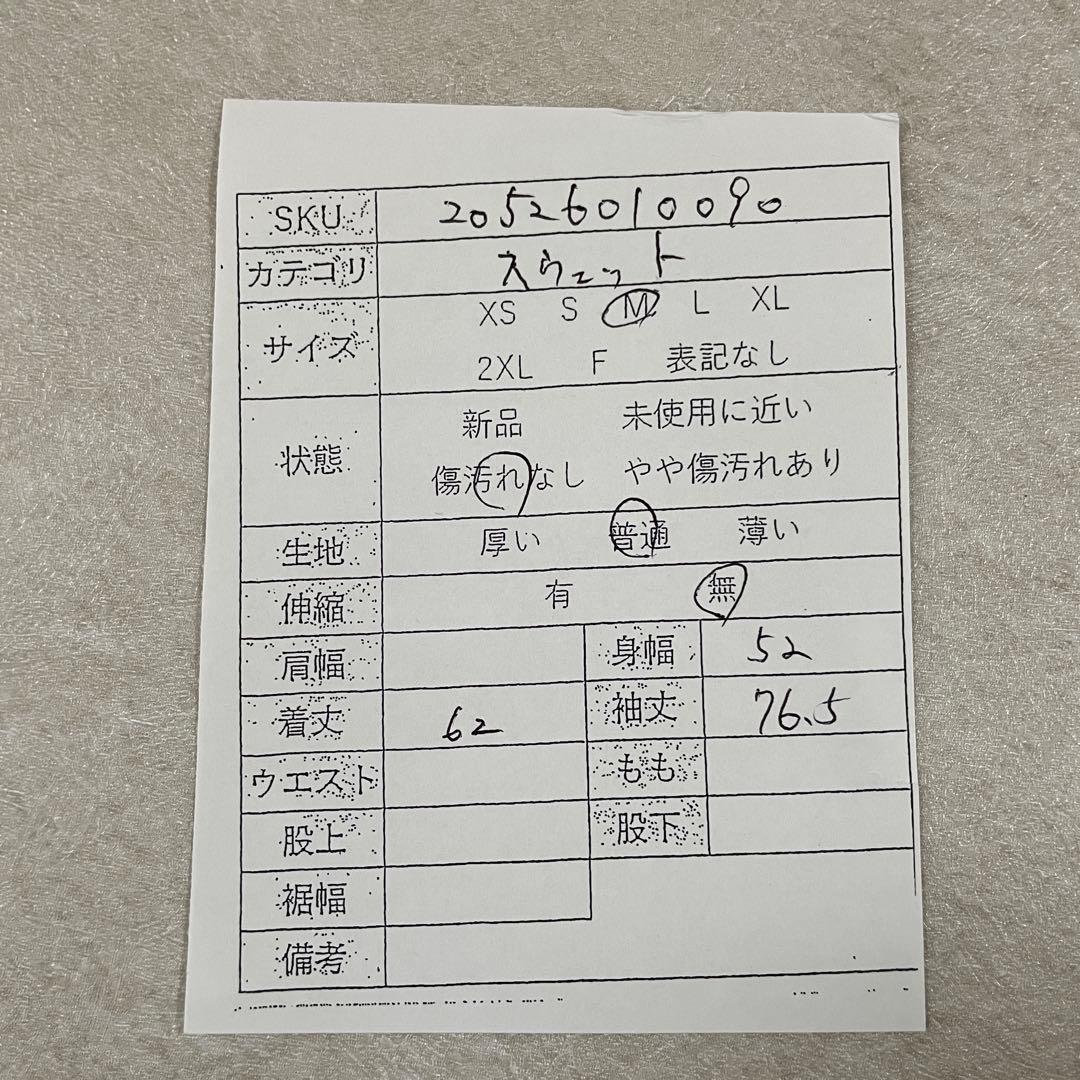 SKU 20526010090
カテゴリ スウェット
サイズ XS S M L XL
2XL F 表記なし
状態 新品 未使用に近い
傷汚れなし やや傷汚れあり
生地 厚い 普通 薄い
伸縮 有 無
肩幅 身幅 52
着丈 62 袖丈 76.5
ウエスト もも
股上 股下
裾幅
備考